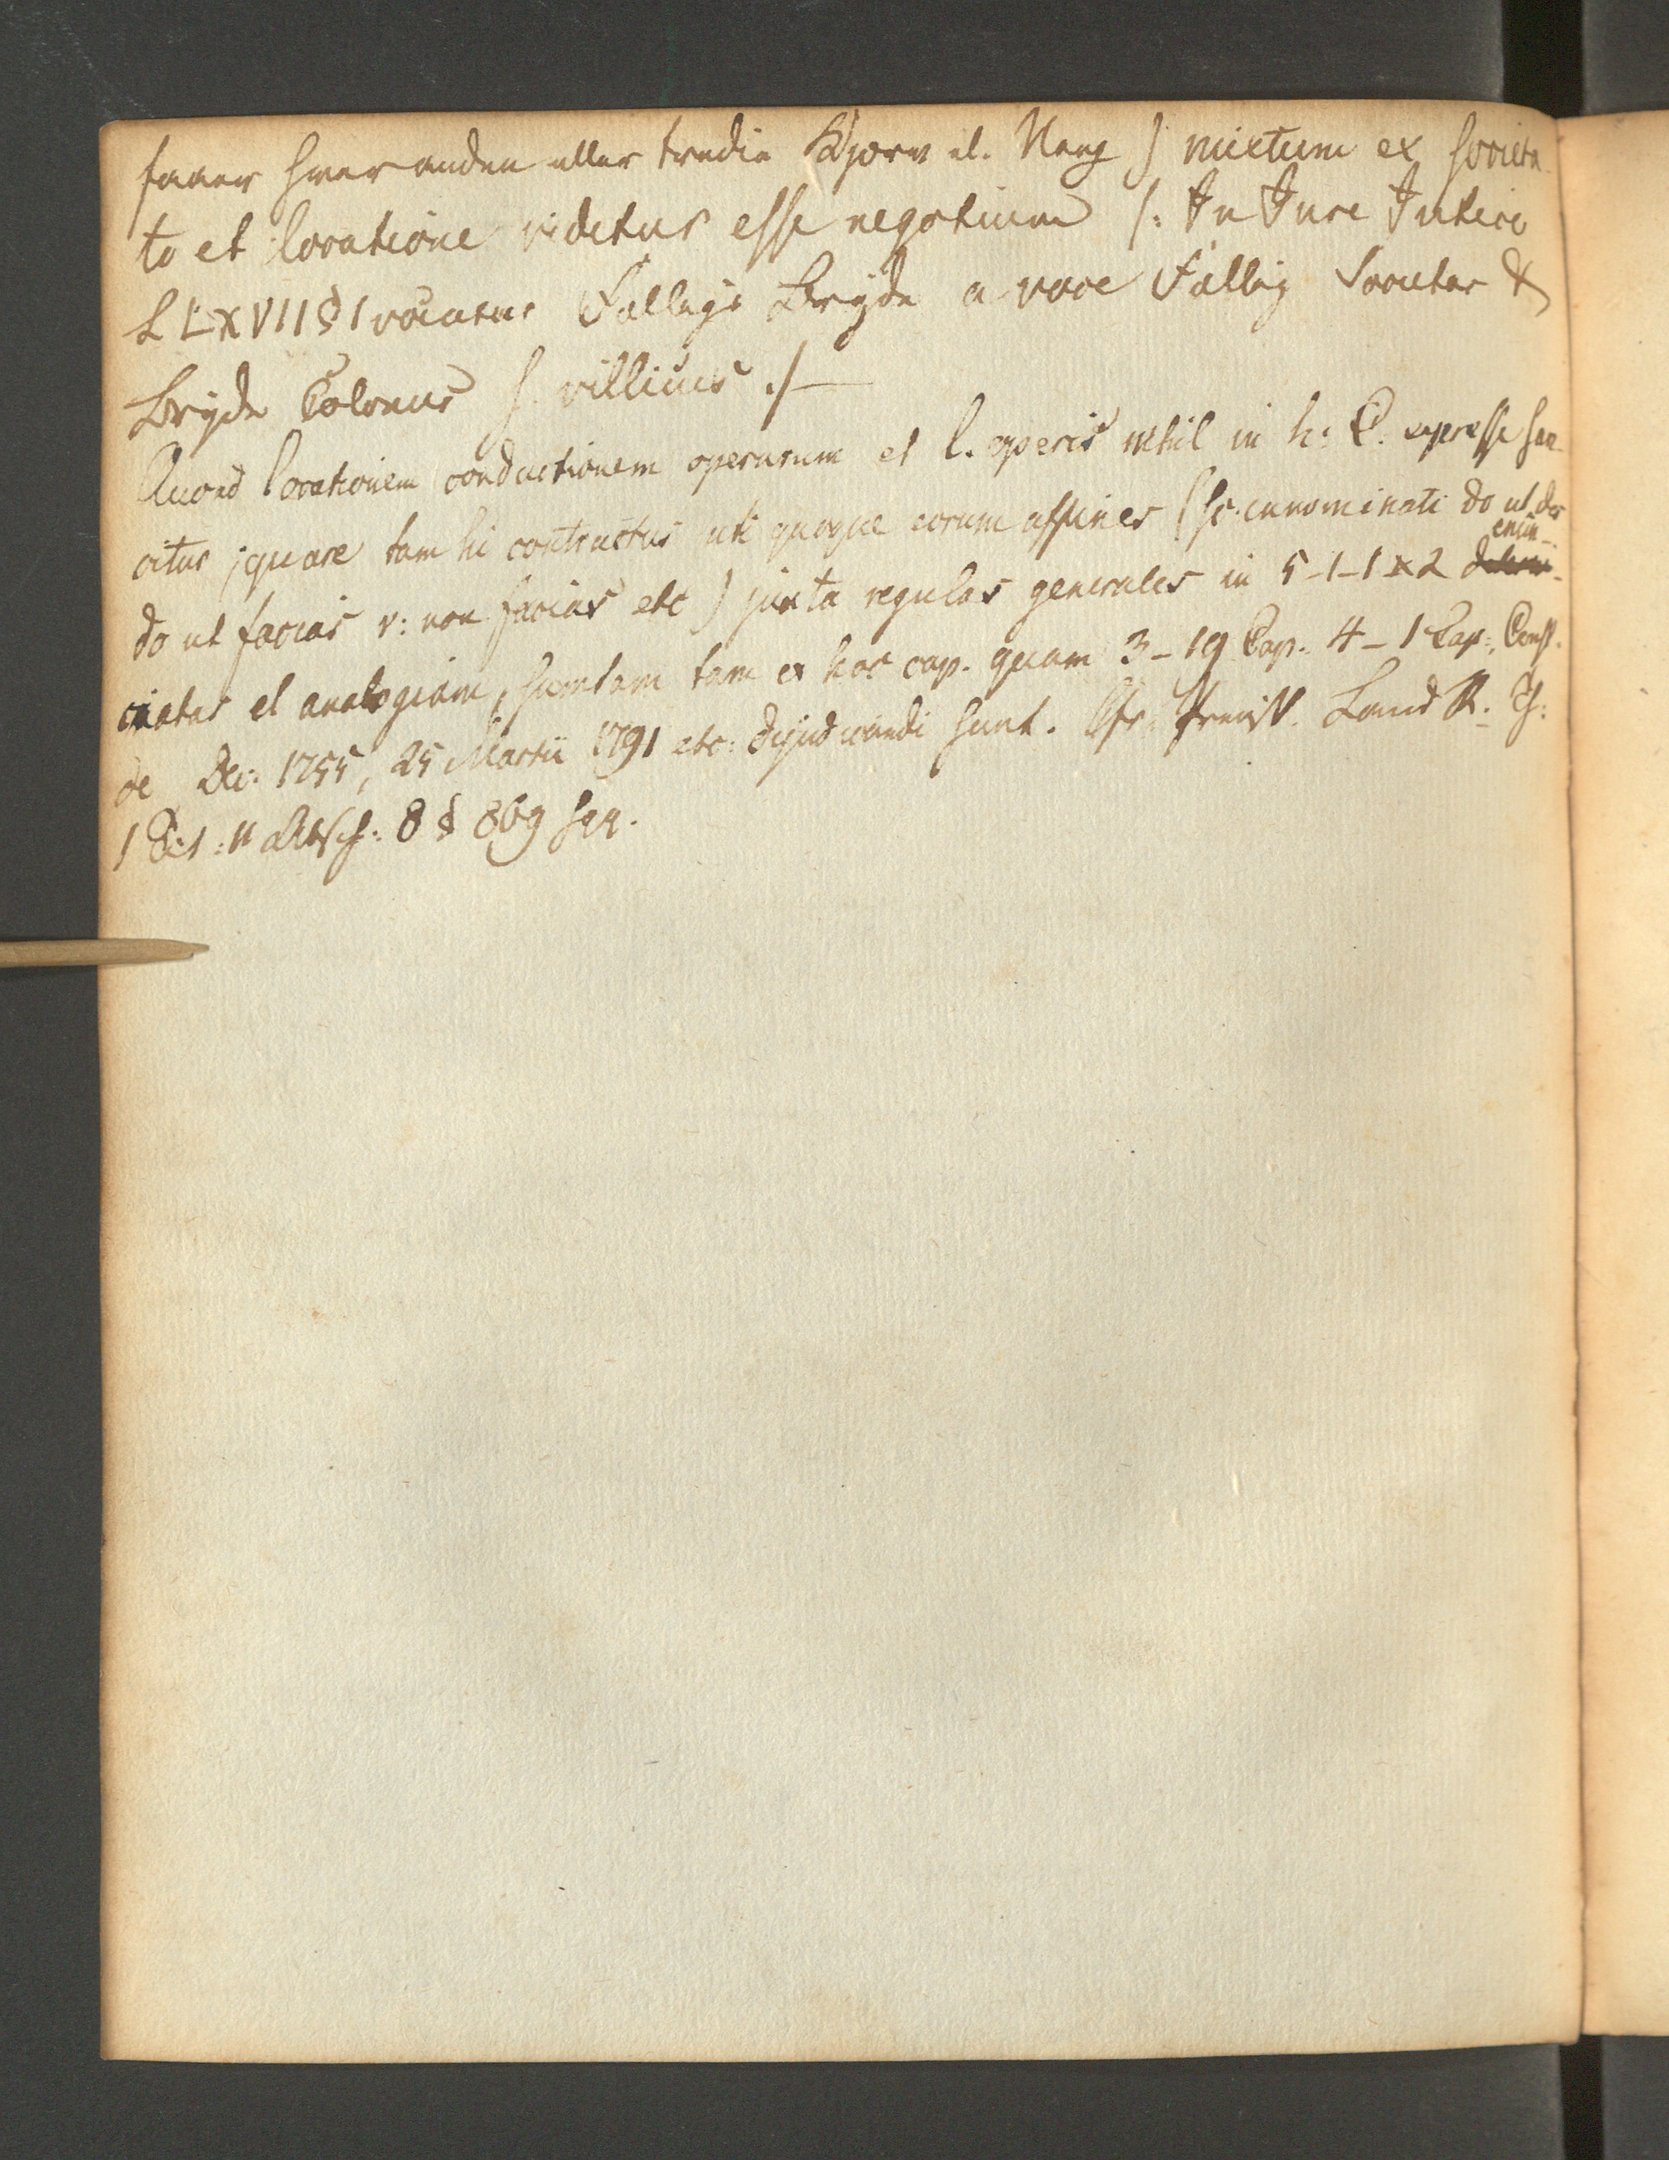 faaer hver anden eller tredie Kjerv el. Neeg) mixtum ex societa
to et locatione videtur esse negotium /: In Jure Jutico
L LXVII § 1 vocatur Fællegs Bryde a voce Fællig Societas &
Bryde Colonus s. villicus :/ —
Quoad locationem conductionem operarum et l. operis nihil in h: C. expresse san-
citur; quare tam hi contractus uti quoque eorum affines (sc: innominati do ut des
do ut facias v: non facias etc) juxta regulas generales in 5-1-1 & 2 enun-
ciatas et analogiam, sumtam tam ex hoc cap. quam 3-19 Cap. 4-1 Cap:, Const.
de Dec: 1755, 25 Martii 1791 etc: dijudicandi sunt. Cfr. Preuss. Land R. Th:
1 Tit: 11 Absch: 8 § 869 seq.